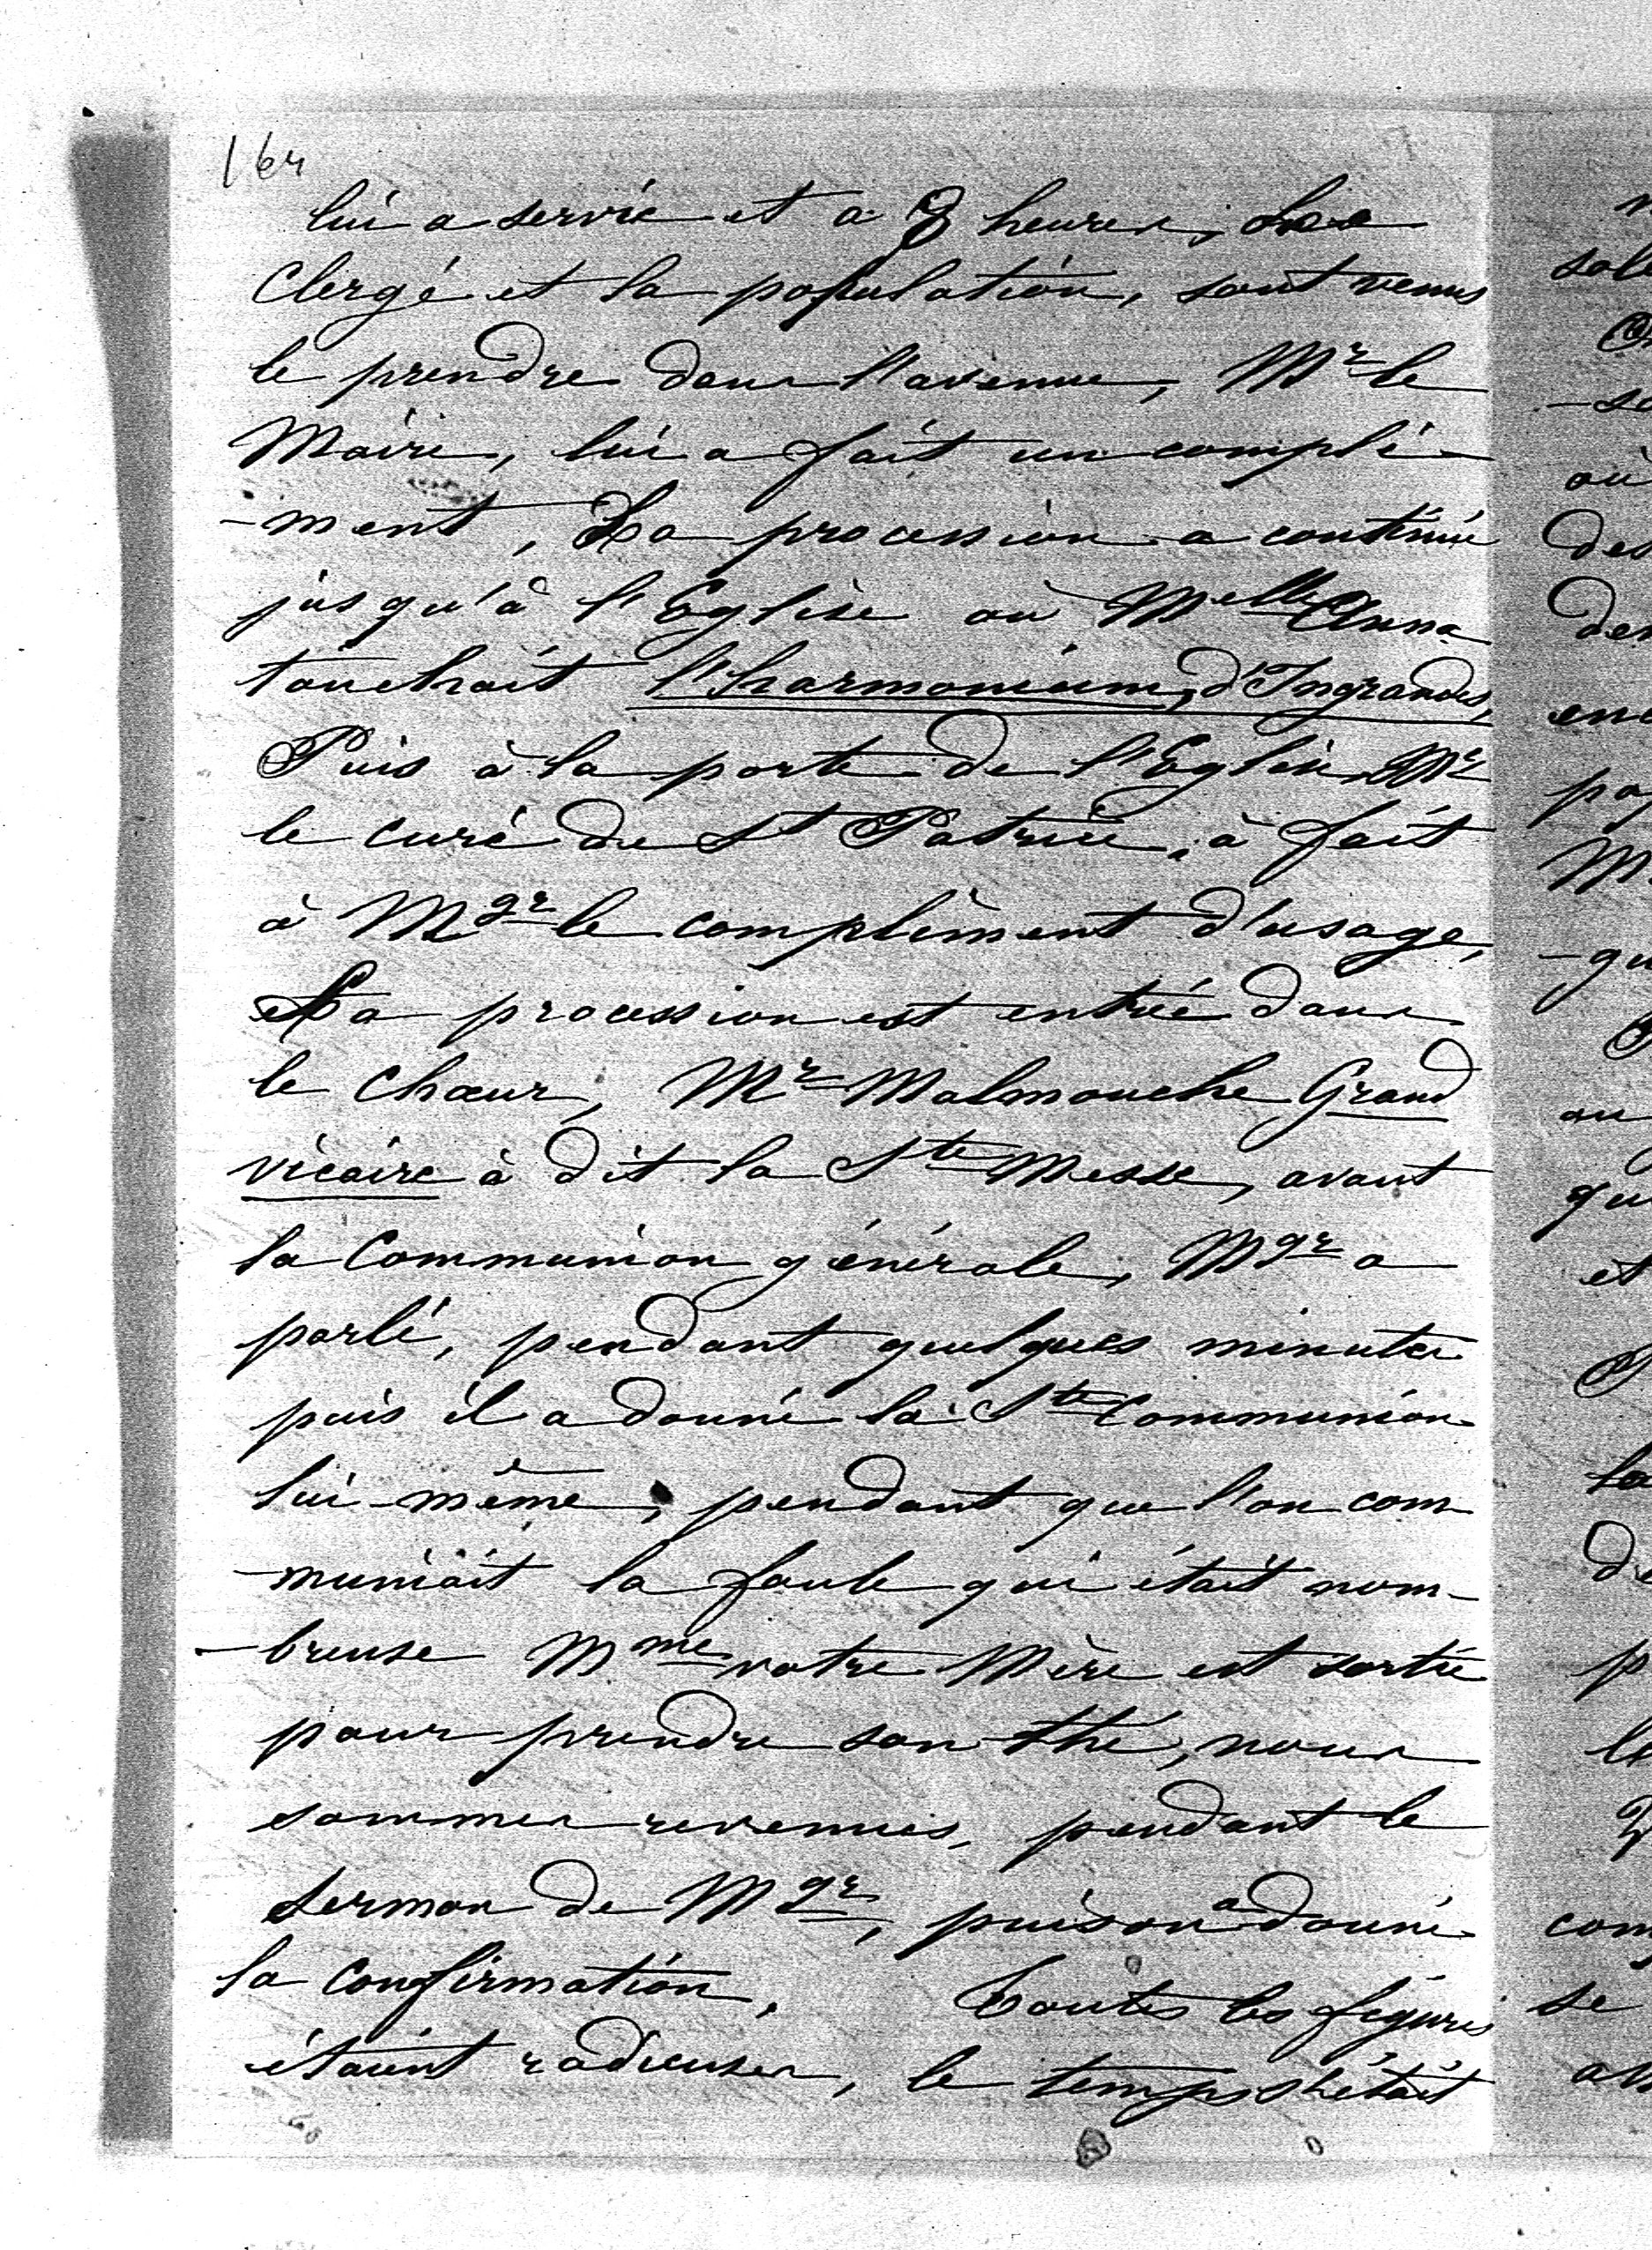 164
lui a servie et a 8 heures, Le
Clergé et la population, sont venus
le prendre dans l'avenue, Mr le
Maire, lui a fait un compli-
-ment, La procession a continué
jusqu'à l'Eglise où Melle Anna
touchait l'harmonium, d'Ingrandes,
Puis à la porte de l'Eglise, Mr
le curé de St Patrice, à fait
à Mgr le complèment d'usage,
La procession est entrée dans
le Chœur, Mr Malmouche Grand
vicaire à dit la Ste Messe, avant
la Communion générale, Mgr a
parlé, pendant quelques minutes
puis il a donné la Ste Communion
lui-même, pendant que l'on com
-muniait la foule qui était nom-
-breuse Mme votre Mère est sortie
pour prendre son thé, nous
sommes revenues, pendant le
sermon de Mgr, puis on a donné
la Confirmation, Toutes les figures
étaient radieuses, le temps s'était